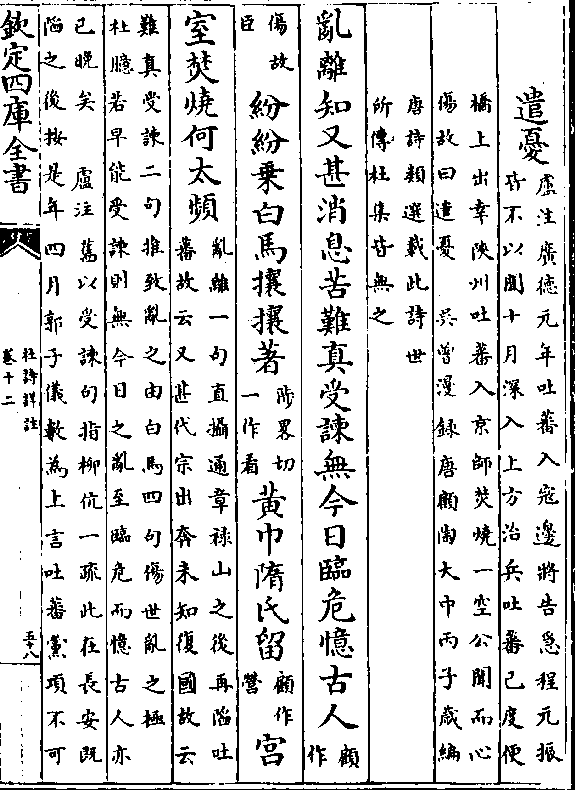 遣憂
盧注廣德元年吐蕃入寇邊將告急程元振
皆不以聞十月深入上方治兵吐蕃已度便
橋上出幸陜州吐蕃入京師焚燒一空公聞而心
傷故曰遣憂 吳曾漫録唐顧陶大中丙子歲編
唐詩類選載此詩世
所傳杜集皆無之
亂離知又甚消息苦難真受諫無今日臨危憶古人
顧作
傷故
臣
紛紛乗白馬攘攘著
陟畧切
一作看
黄巾隋氏留
顧作
營
宫
室焚燒何太頻
亂離一句直攝通章禄山之後再陷吐
蕃故云又甚代宗出奔未知復國故云
難真受諫二句推致亂之由白馬四句傷世亂之極
杜臆若早能受諫則無今日之亂至臨危而憶古人亦
已晩矣 盧注舊以受諫句指柳伉一疏此在長安既
陷之後按是年四月郭子儀數為上言吐蕃黨項不可
欽定四庫全書
杜詩詳註
卷十二
五八